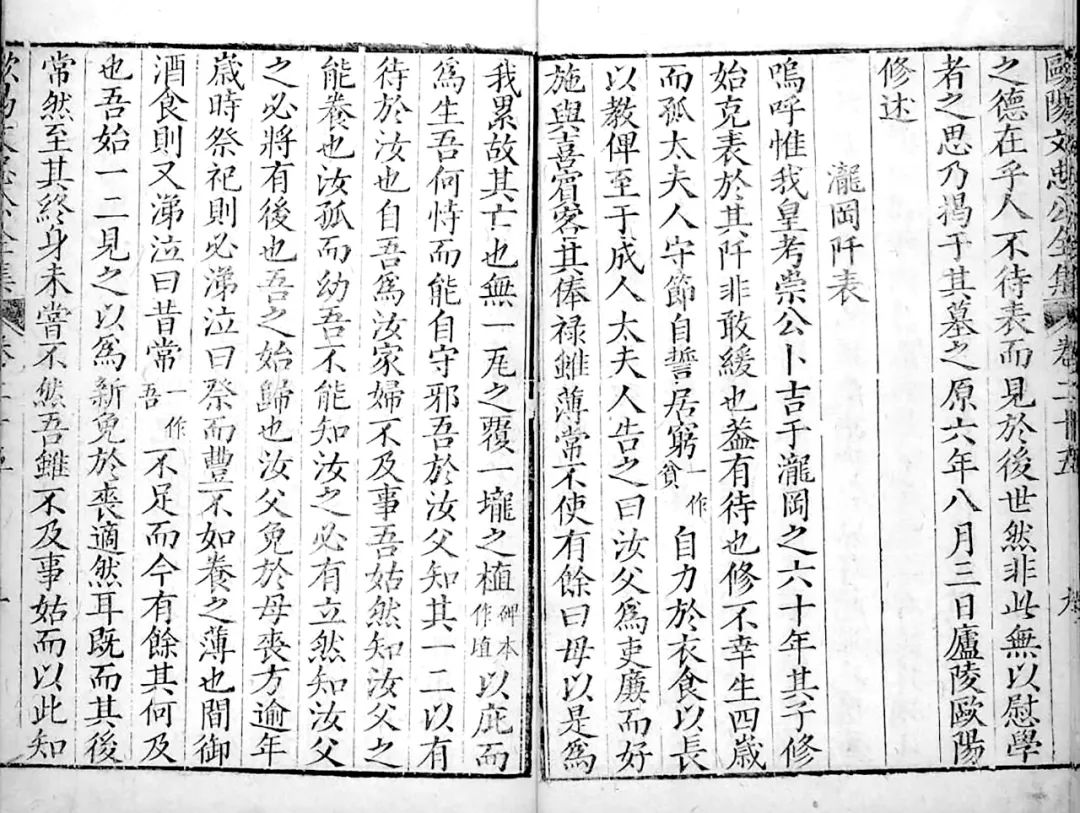 歐陽文忠公全集 卷二十五 九
之德在乎人不待表而見於後世然非此無以慰學
者之思乃揭于其墓之原六年八月三日廬陵歐陽
修述
瀧岡阡表
嗚呼惟我皇考崇公卜吉于瀧岡之六十年其子修
始克表於其阡非敢緩也蓋有待也修不幸生四歲
而孤太夫人守節自誓居窮一作貧自力於衣食以長
以教俾至于成人太夫人告之曰汝父爲吏廉而好
施與喜賓客其俸祿雖薄常不使有餘曰毋以是爲
我累故其亡也無一瓦之覆一壠之植碑本作埴以庇而
爲生吾何恃而能自守邪吾於汝父知其一二以有
待於汝也自吾爲汝家婦不及事吾姑然知汝父之
能養也汝孤而幼吾不能知汝之必有立然知汝父
之必將有後也吾之始歸也汝父免於母喪方逾年
歲時祭祀則必涕泣曰祭而豐不如養之薄也間御
酒食則又涕泣曰昔常一作吾不足而今有餘其何及
也吾始一二見之以爲新免於喪適然耳既而其後
常然至其終身未嘗不然吾雖不及事姑而以此知